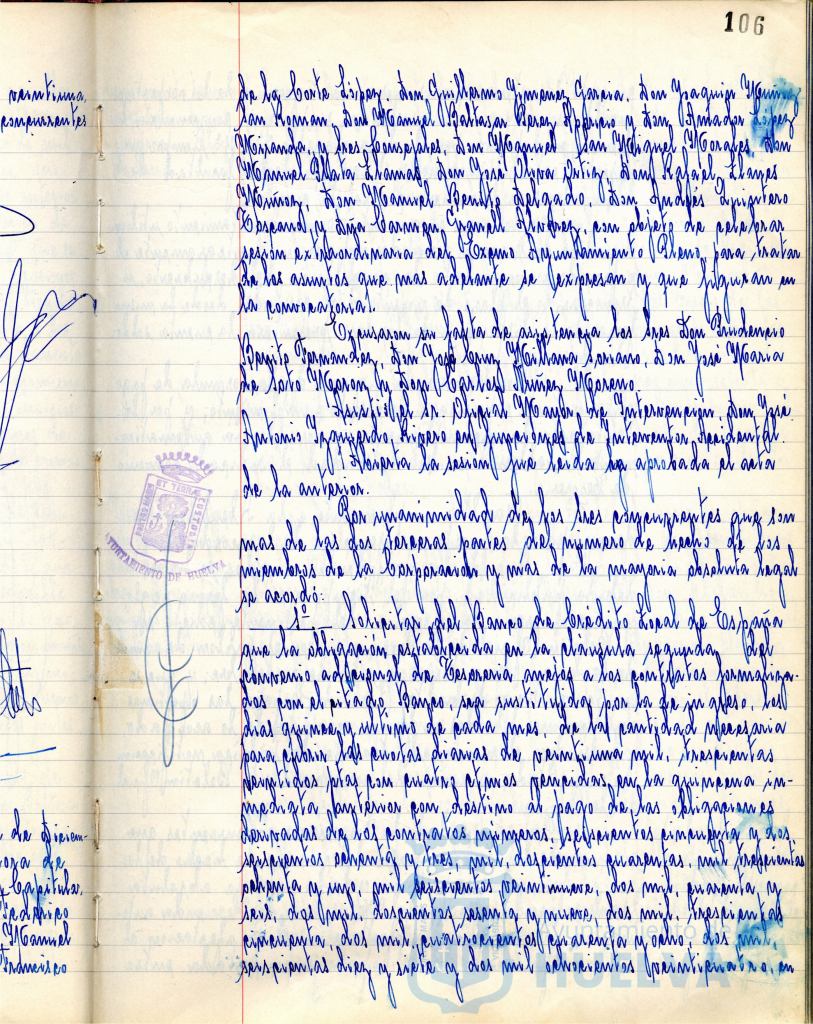 106
veintiuna,
concurrentes
de la Corte López, Don Guillermo Jimenez Garcia, Don Joaquin
San Roman, Don Manuel Baltasar Perez Aparicio y Don Amador López
Miranda, y tres Consejales, Don Manuel San Miguel Morales Don
Manuel Mata Llamas, Don José Oliva Ortiz, Don Rafael Llanes
Muñoz, Don Manuel Benito Delgado, Don Andrés Quintero
y Dña Carmen Alvarez, con objeto de celebrar
sesión extraordinaria del Excmo Ayuntamiento Pleno, para tratar
de los asuntos que mas adelante se expresan y que figuran en
la convocatoria.
Excusaron su falta de asistencia los sres Don Prudencio
Benito Fernandez, Don José Cruz Millana Soriano, Don José Maria
de Soto Moron y Don Carlos Núñez Moreno.
Asistió el sr. Oficial Mayor de Intervencion, Don José
Antonio Izquierdo Rivero en funciones de Interventor Accidental.
Abierta la sesion, fue leida y aprobada el acta
de la anterior.
Por unanimidad de los sres concurrentes que son
mas de las dos terceras partes del numero de hecho de los
miembros de la Corporacion y mas de la mayoria absoluta legal
se acordó:
1º _ Solicitar del Banco de Crédito Local de España
que la obligación establecida en la cláusula segunda del
convenio adicional de Tesoreria anejos a los contratos formaliza-
dos con el citado Banco, sea sustituida por la de ingreso, los
dias quince y ultimo de cada mes, de la cantidad necesaria
para cubrir las cuotas diarias de veintiuna mil, trescientas
veintidos ptas con cuatro ctmos vencidas en la quincena in-
mediata anterior con destino al pago de las obligaciones
derivadas de los contratos números, seiscientos cincuenta y dos,
seiscientos ochenta y tres, mil, doscientos cuarenta, mil trescientos
ochenta y uno, mil seiscientos veintinueve, dos mil, cuarenta y
seis, dos mil, doscientos sesenta y nueve, dos mil, trescientos
cincuenta, dos mil, cuatrocientos cuarenta y ocho, dos mil,
seiscientos diez y siete y dos mil ochocientos veinticuatro, en
AYUNTAMIENTO DE HUELVA
de Diciem-
de
Capitular,
Federico
Manuel
Francisco
Ayuntamiento de
HUELVA